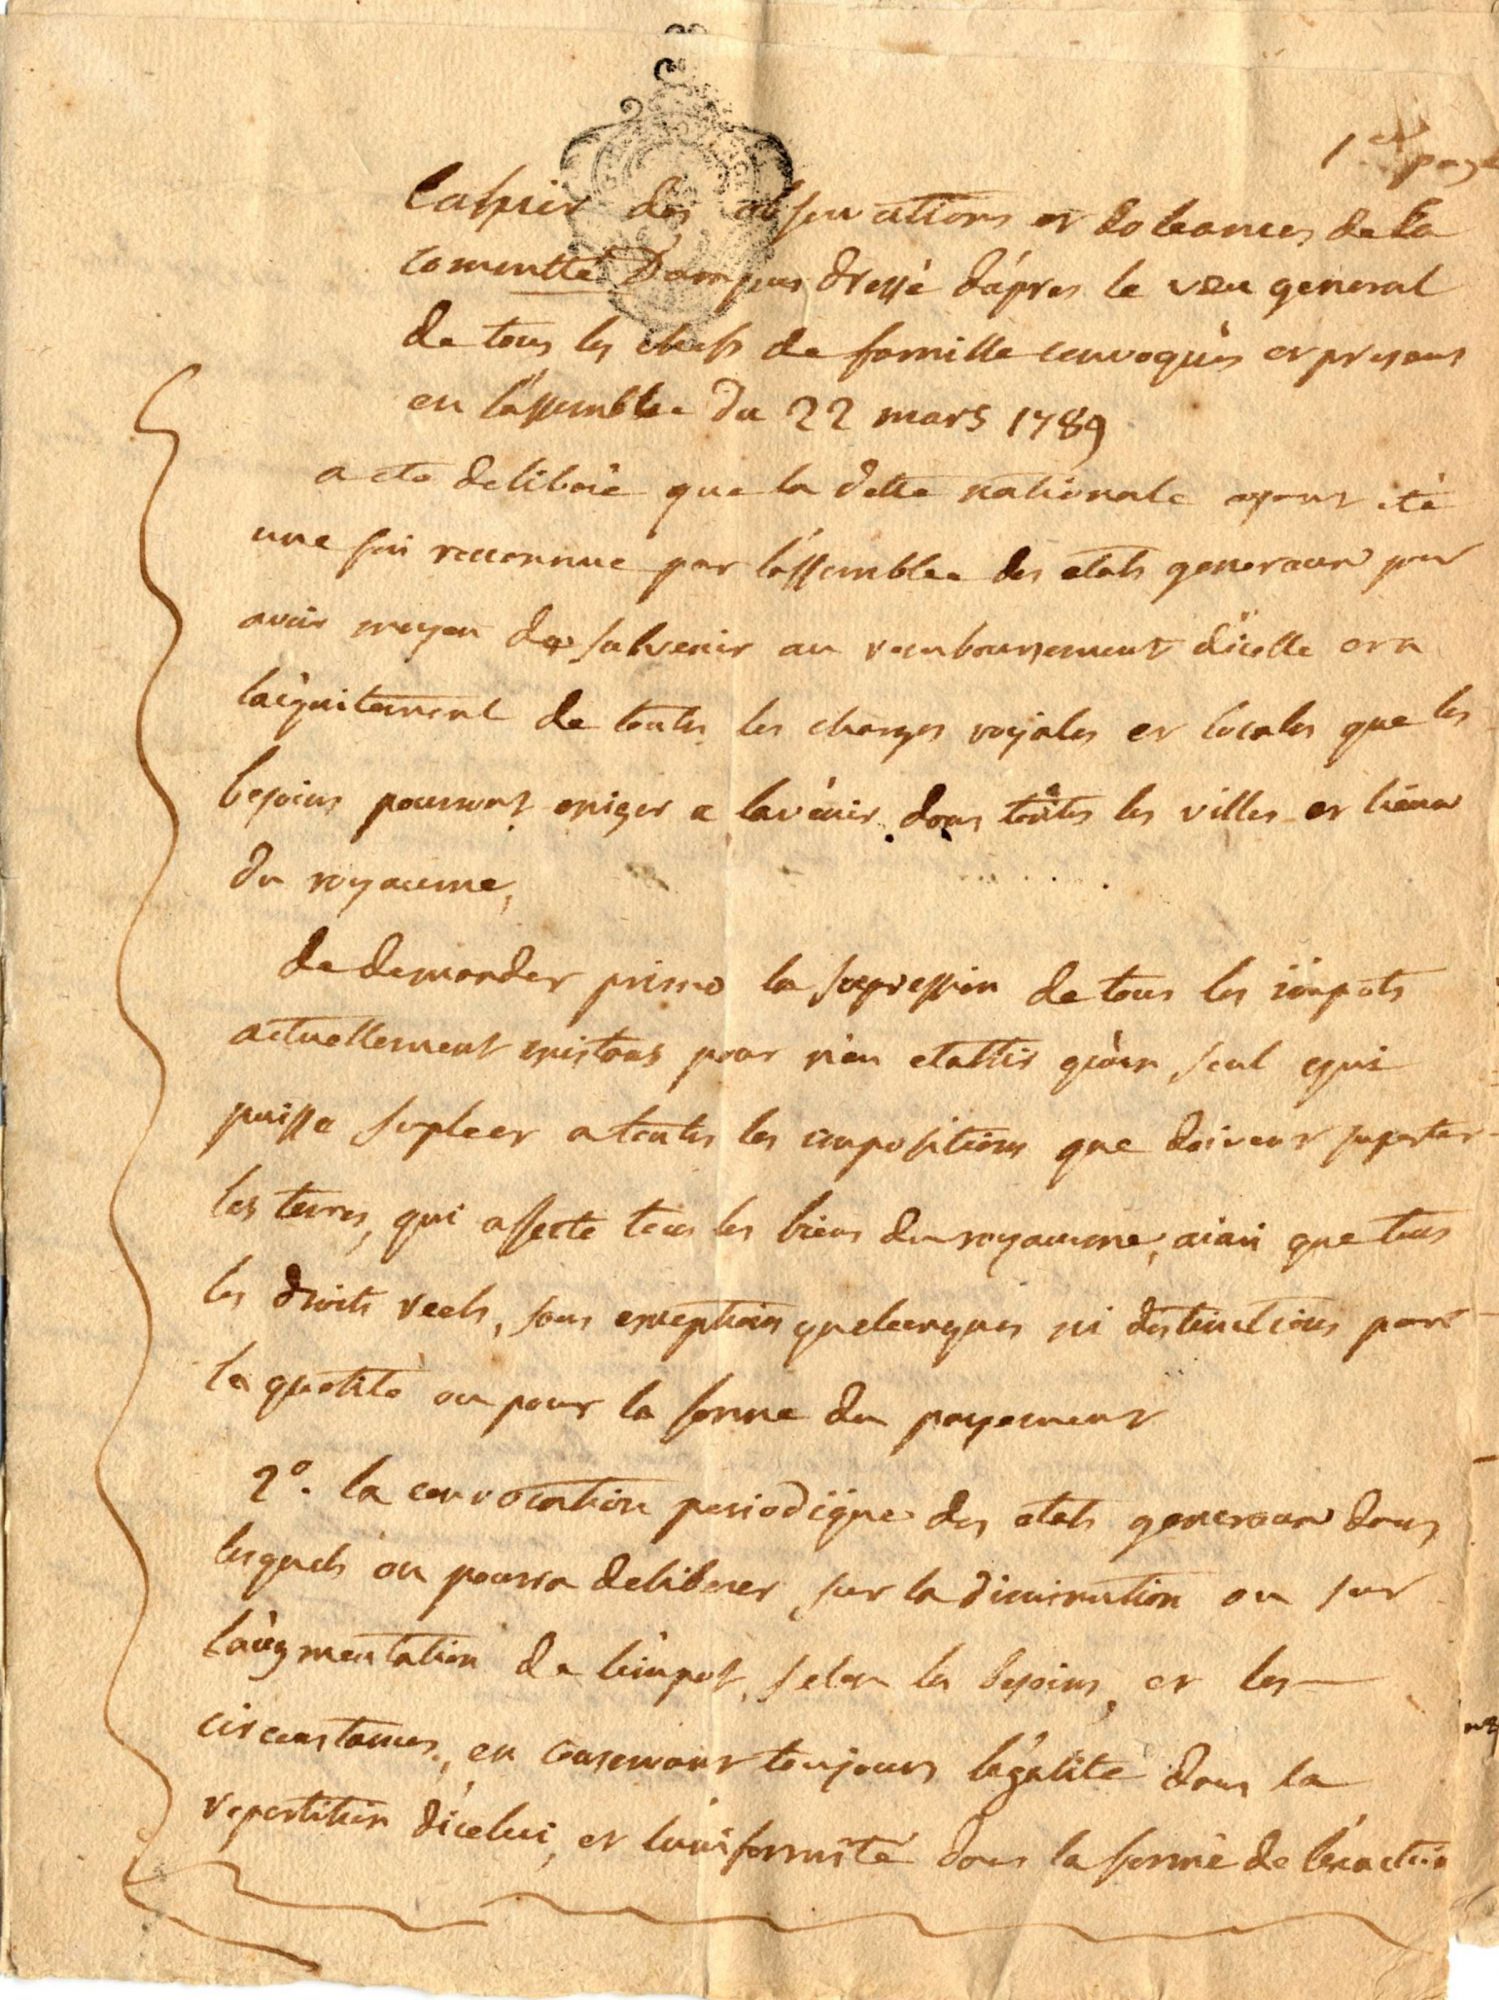 1.er page
Cahier des observations et doleances de la
comuntté Dampus dressé dápres le vœu general
de tous les chefs de famille convoqués et presens
en lássemblée du 22 mars 1789
a eté deliberé que la dette nationale ayant été
une foi reconnue par lássemblée des etats generaux pour
avoir moyen de subvenir au remboursement dícelle et a
lácquitement de toutes les charges royales et locales que les
besoins pourront exiger a lavénir dans toutes les villes et lieux
du royaume,
de demander primo la supression de tous les impots
actuellement existans pour nén etablir qúun seul qui
puisse supleer a toutes les impositions que doivent suporter
les terres, qui affecte tous les biens du royaume, ainsi que tous
les droits reels, sans exceptions quelconques ni distinctions pour
la quotité ou pour la forme du payement
2º. la convocation periodique des etats generaux dans
lesquels on pourra deliberer, sur la diminution ou sur
láugmentation de límpot, selon les besoins, et les
circonstances, en conservant toujours légalité dans la
repartition dícelui, et luniformité dans la forme de léxaction